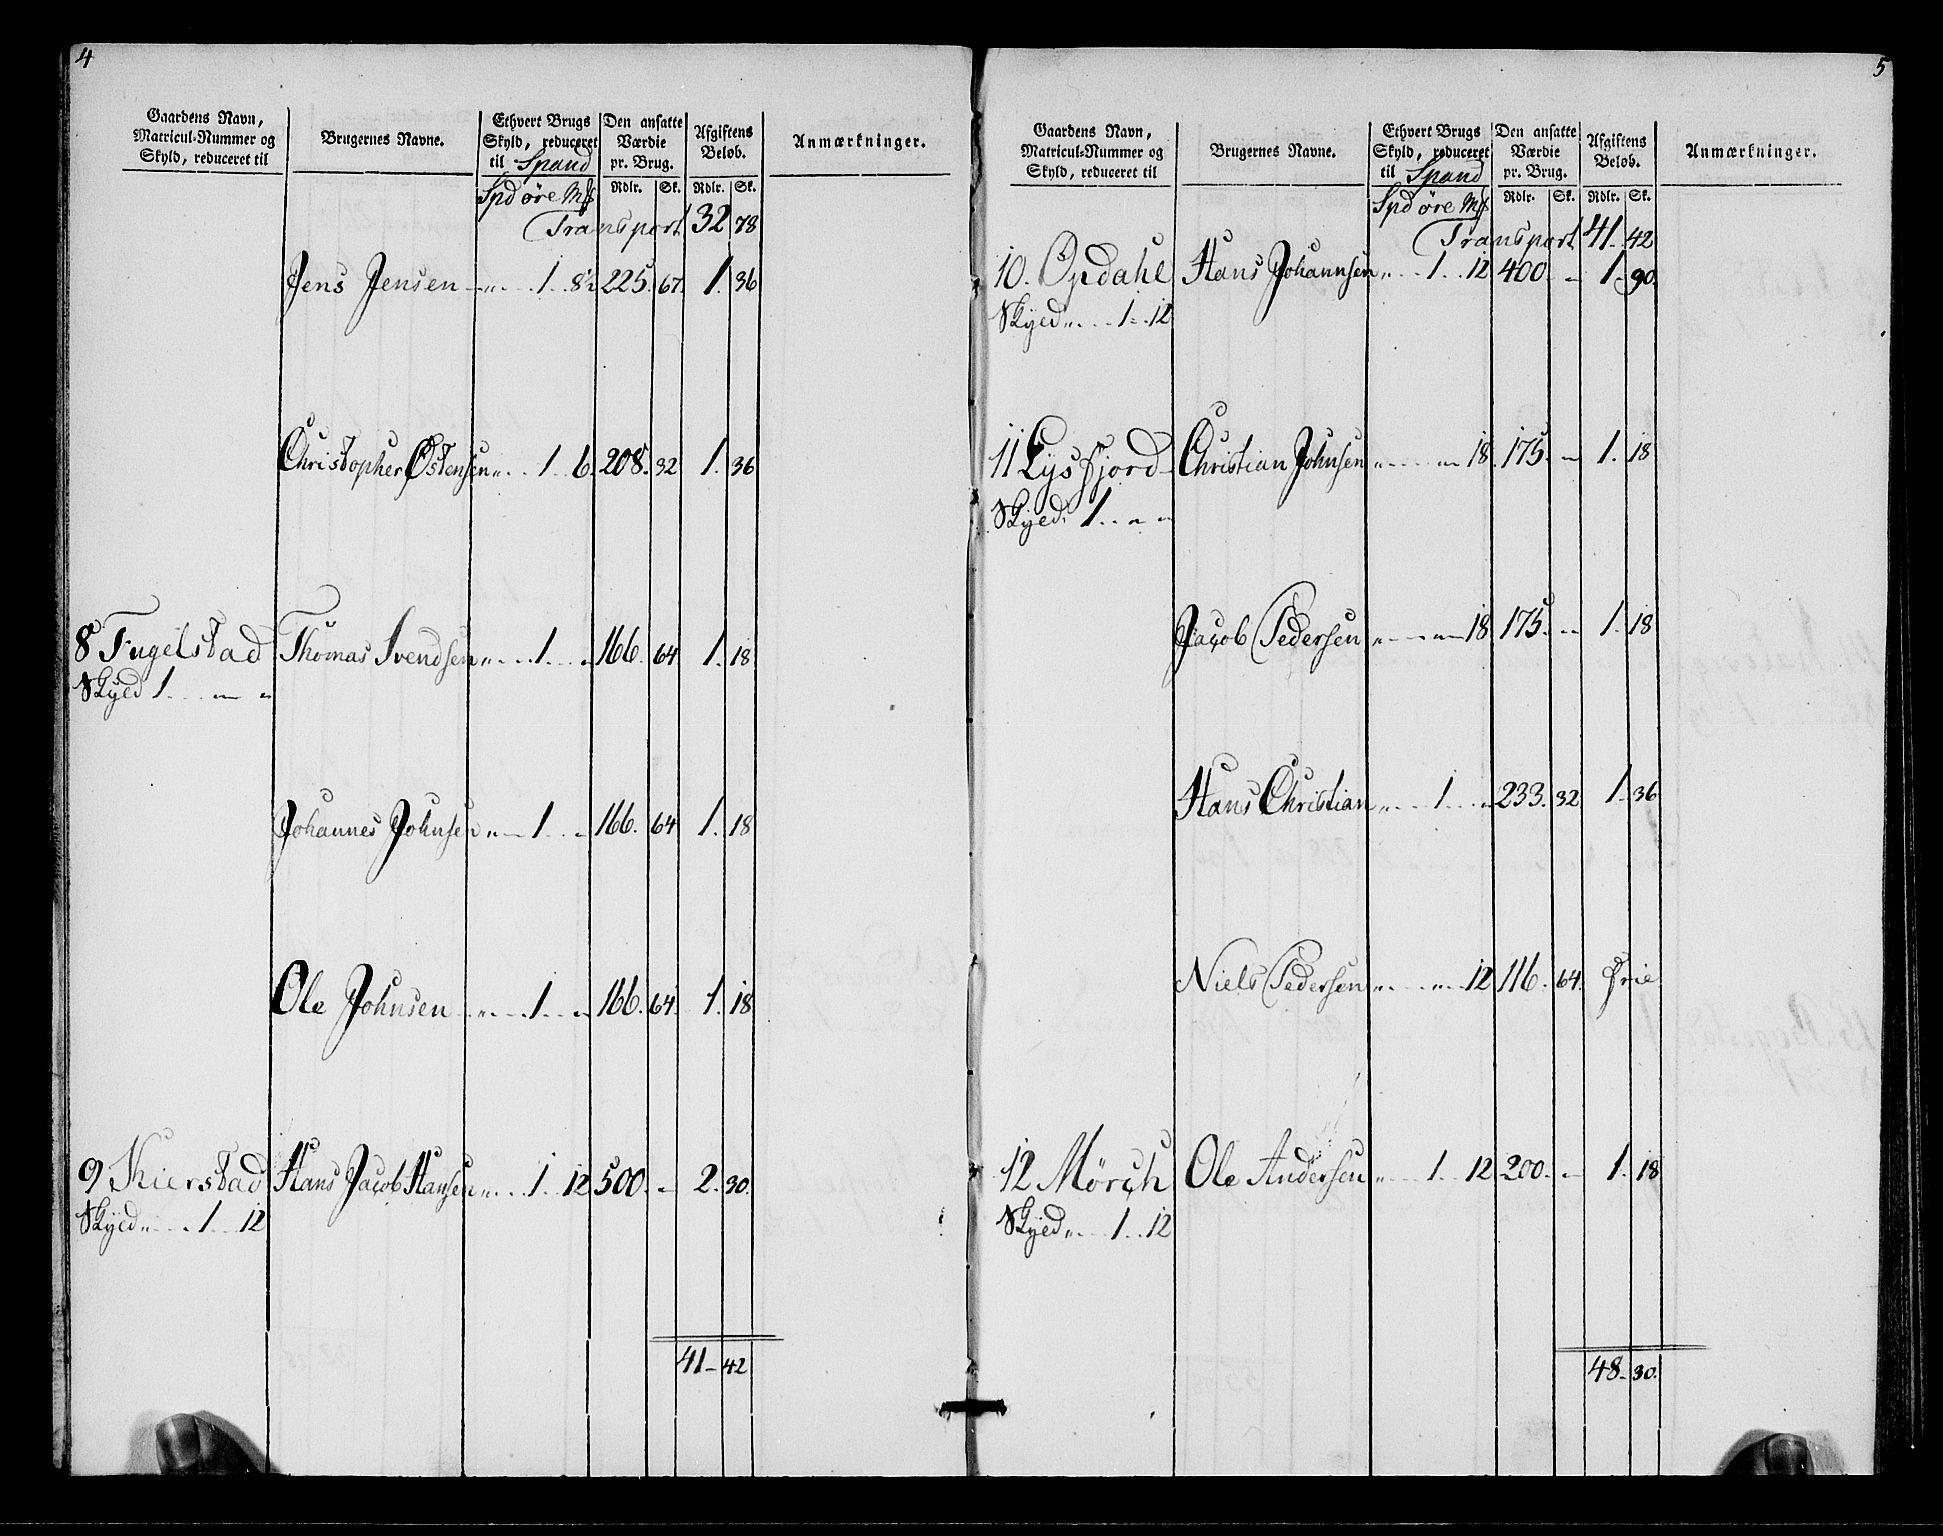 4
Gaardens Navn,
Matricul-Nummer og
Skyld, reduceret til
Brugernes Navne.
Ethvert Brugs
Skyld, reduceret
til Spand
Den ansatte
Værdie
pr. Brug.
Afgiftens
Beløb.
Anmærkninger.
Rdlr. Sk. Rdlr. Sk.
Spd øre Mk
Transport 32 78
Jens Jensen „ 1 8½ 225. 67. 1. 36
Christopher Østensen „ 1 6. 208. 32 1. 36
8 Fugelstad Thomas Svendsen „ 1 „ 166. 64 1. 18
Skyld 1 „ „
Johannes Johnsen „ 1 „ 166. 64 1. 18
Ole Johnsen „ 1 „ 166. 64. 1. 18
9 Kierstad Hans Jacob Hansen „ 1 12 500. „ 2. 30.
Skyld „ 1 12
41 42
5
Gaardens Navn,
Matricul-Nummer og
Skyld, reduceret til
Brugernes Navne.
Ethvert Brugs
Skyld, reduceret
til Spand
Den ansatte
Værdie
pr. Brug.
Afgiftens
Beløb.
Anmærkninger.
Rdlr. Sk. Rdlr. Sk.
Spd øre Mk
Transport 41 42
10. Opdahl Hans Johannsen „ 1 12 400 „ 1. 90.
Skyld „ 1 12
11 Lysfjord Christian Johnsen „ „ 18. 175. „ 1. 18
Skyld 1 „ „
Jacob Pedersen „ „ 18 175. „ 1. 18
Hans Christian „ 1 „ 233. 32 1. 36
Niels Pedersen „ „ 12 116. 64. frie
12 Mörch Ole Andersen „ 1 12 200. „ 1. 18
Skyld „ 1 12
48 30.